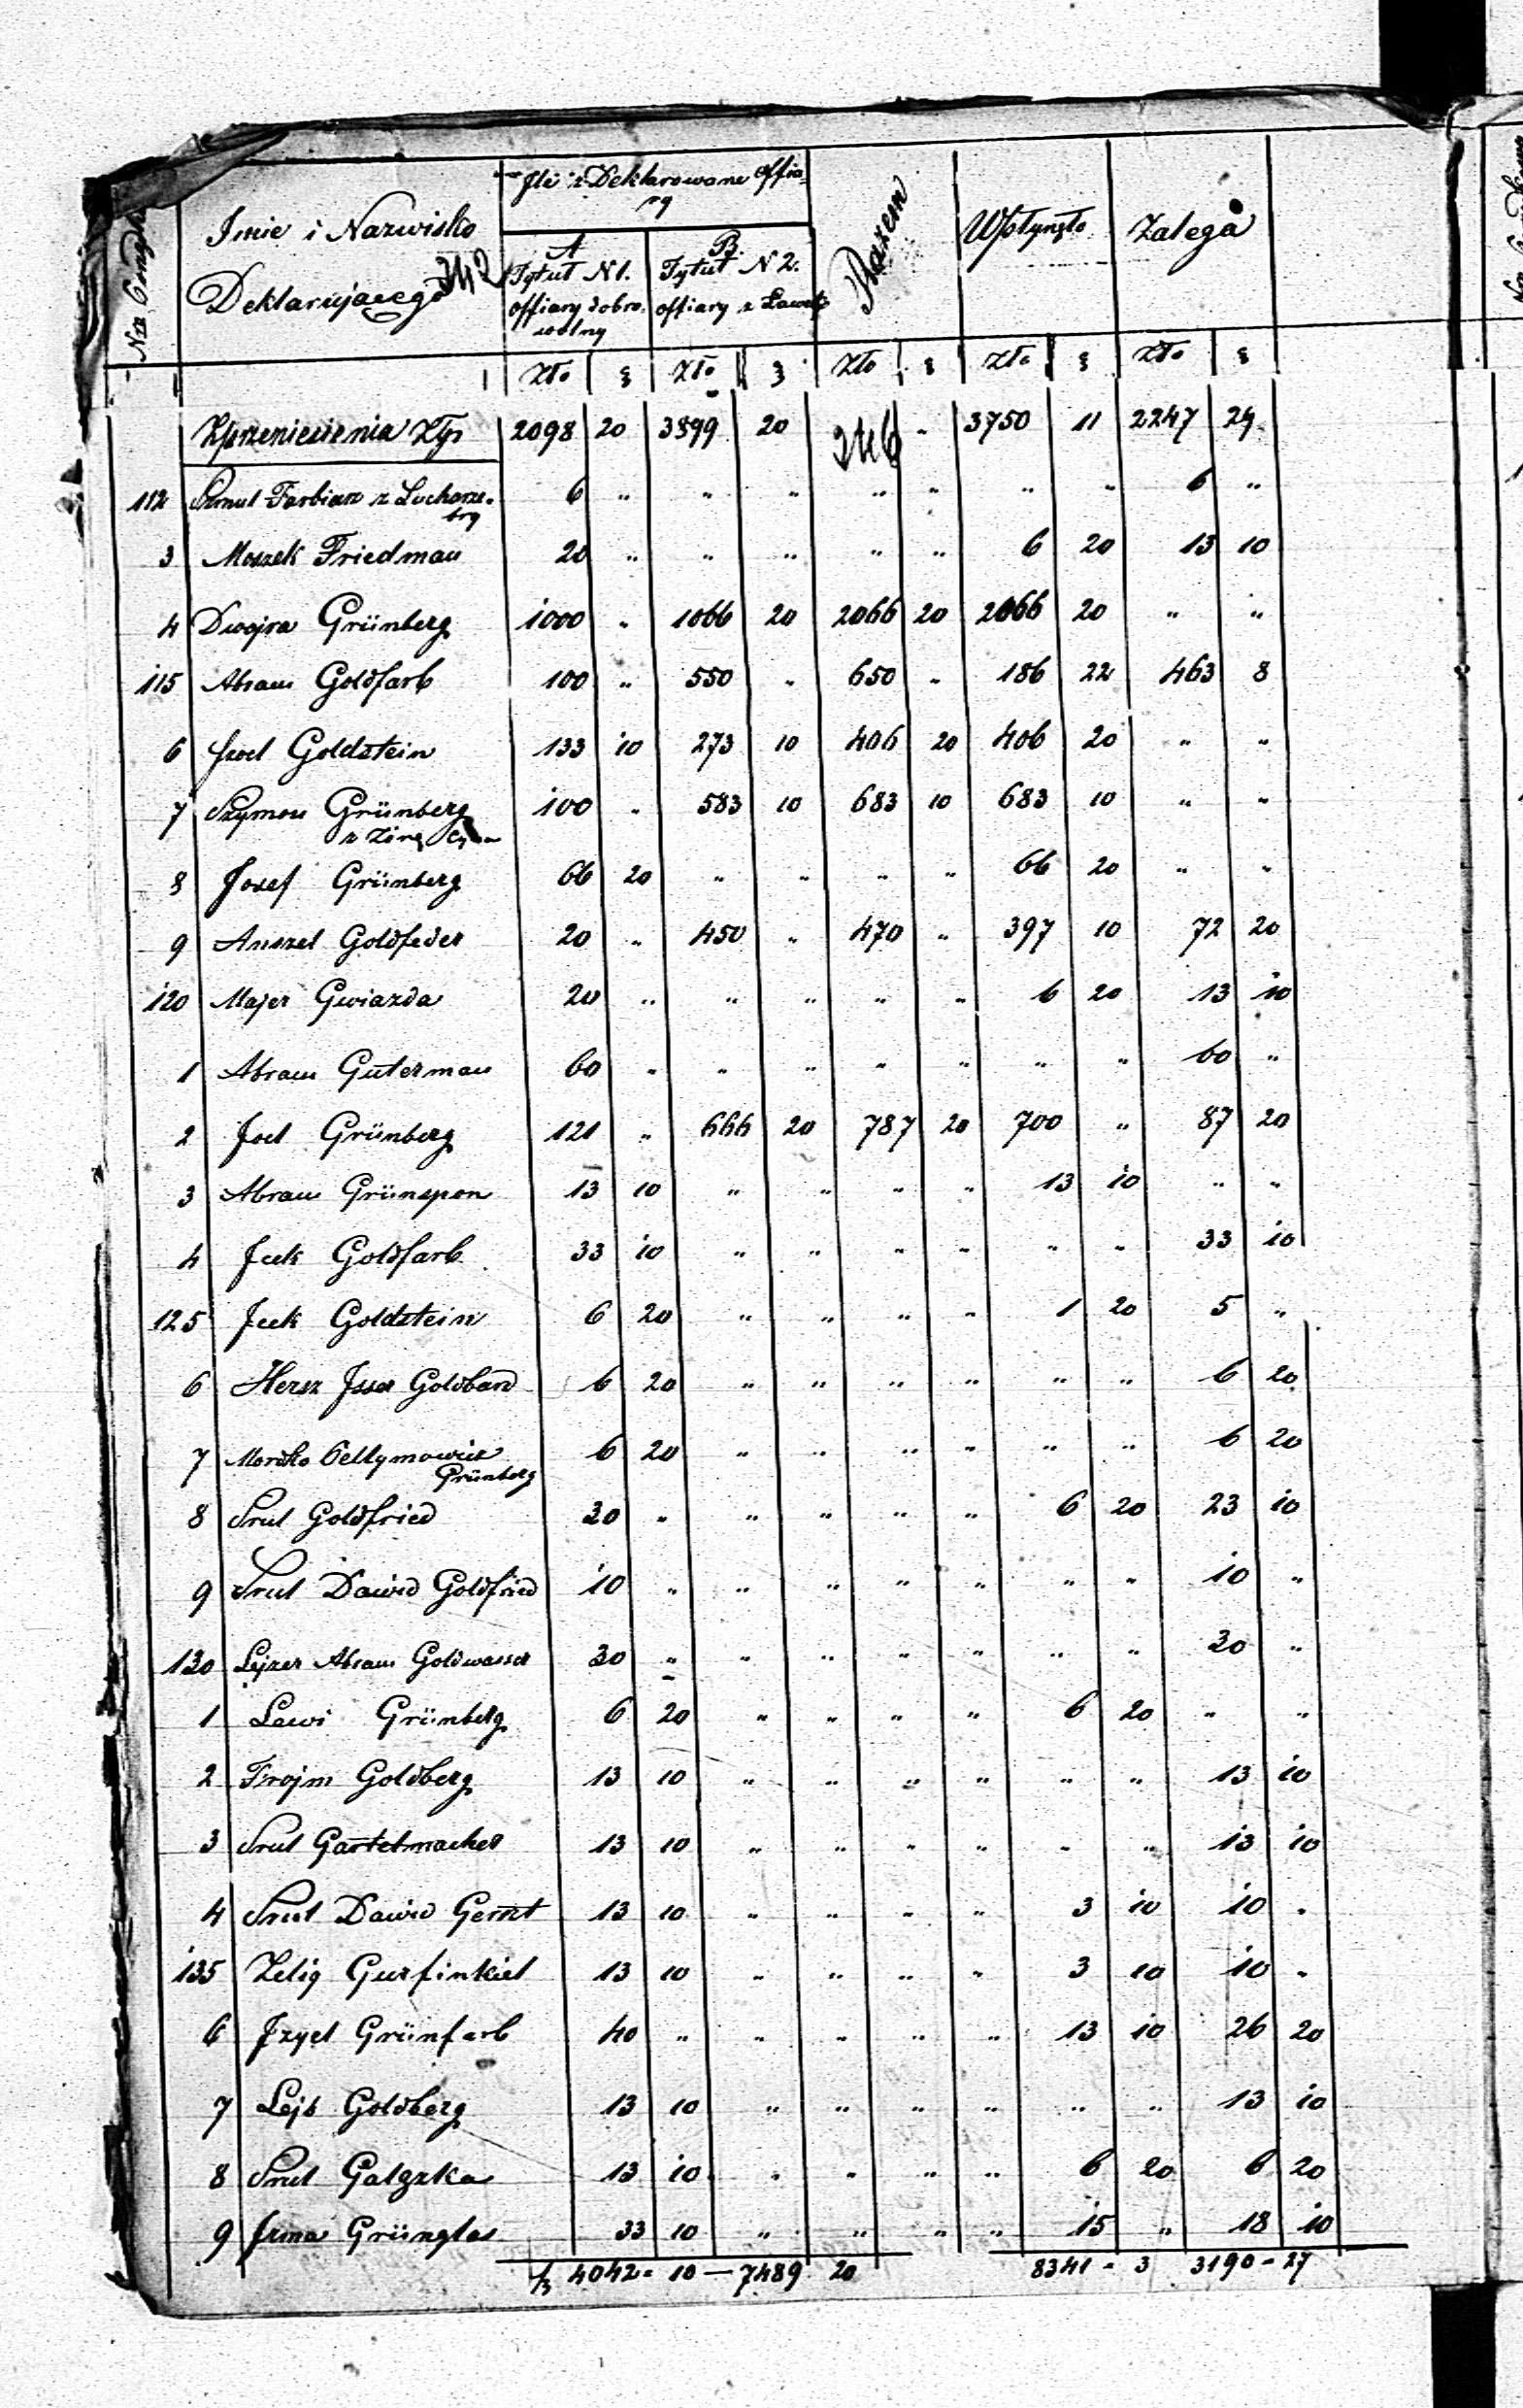 Nrz Ciągły
Imie i Nazwisko
Deklarującego
242
Ile zDeklarowano offia-
ry
A
Tytuł N 1.
offiary dobro-
wolny
B.
Tytuł N 2.
offiary z Ławek
Razem
Wpłynęło
Zalega
Złó g Złó g Złó g Złó g Złó g
Zprzeniesienia Złp 2098 20 3899 20 246 " 3750 11 2247 29
112 Szmul Farbiarz z Lucharze- 6 " " " " " " " 6 "
bry
3 Moszek Friedman 20 " " " " " 6 20 13 10
4 Dwojra Grünberg 1000 " 1066 20 2066 20 2066 20 " "
115 Abram Goldfarb 100 " 550 " 650 " 186 22 463 8
6 Joel Goldstein 133 10 273 10 406 20 406 20 " "
7 Szymon Grünberg 100 " 583 10 683 10 683 10 " "
8 Josef Grünberg 66 20 " " " " 66 20 " "
9 Anszel Goldfeder 20 " 450 " 470 " 397 10 72 20
120 Majer Gwiazda 20 " " " " " 6 20 13 10
1 Abram Guterman 60 " " " " " " " 60 "
2 Joel Grünberg 121 " 666 20 787 20 700 " 87 20
3 Abram Grünspon 13 10 " " " " 13 10 " "
4 Icek Goldfarb 33 10 " " " " " " 33 10
125 Icek Goldstein 6 20 " " " " 1 20 5 "
6 Hersz Isser Goldband 6 20 " " " " " " 6 20
7 Mordko 6 20 " " " " " " 6 20
Grünberg
8 Srul Goldfried 30 " " " " " 6 20 23 10
9 Srul Dawid Goldfried 10 " " " " " " " 10 "
130 Lejzer Abram Goldwasser 30 " " " " " " " 30 "
1 Lewi Grünberg 6 20 " " " " 6 20 " "
2 Frojm Goldberg 13 10 " " " " " " 13 10
3 Srul Gartelmacher 13 10 " " " " " " 13 10
4 Srul Dawid Gerszt 13 10 " " " " 3 10 10 "
135 Zelig Gurfinkiel 13 10 " " " " 3 10 10 "
6 Izyel Grünfarb 40 " " " " " 13 10 26 20
7 Lejb Goldberg 13 10 " " " " " " 13 10
8 Srul Gałązka 13 10 " " " " 6 20 6 20
9 Izma Grünglas 33 10 " " " " 15 " 18 10
4042 - 10 — 7489 20 8341 - 3 3190 - 27